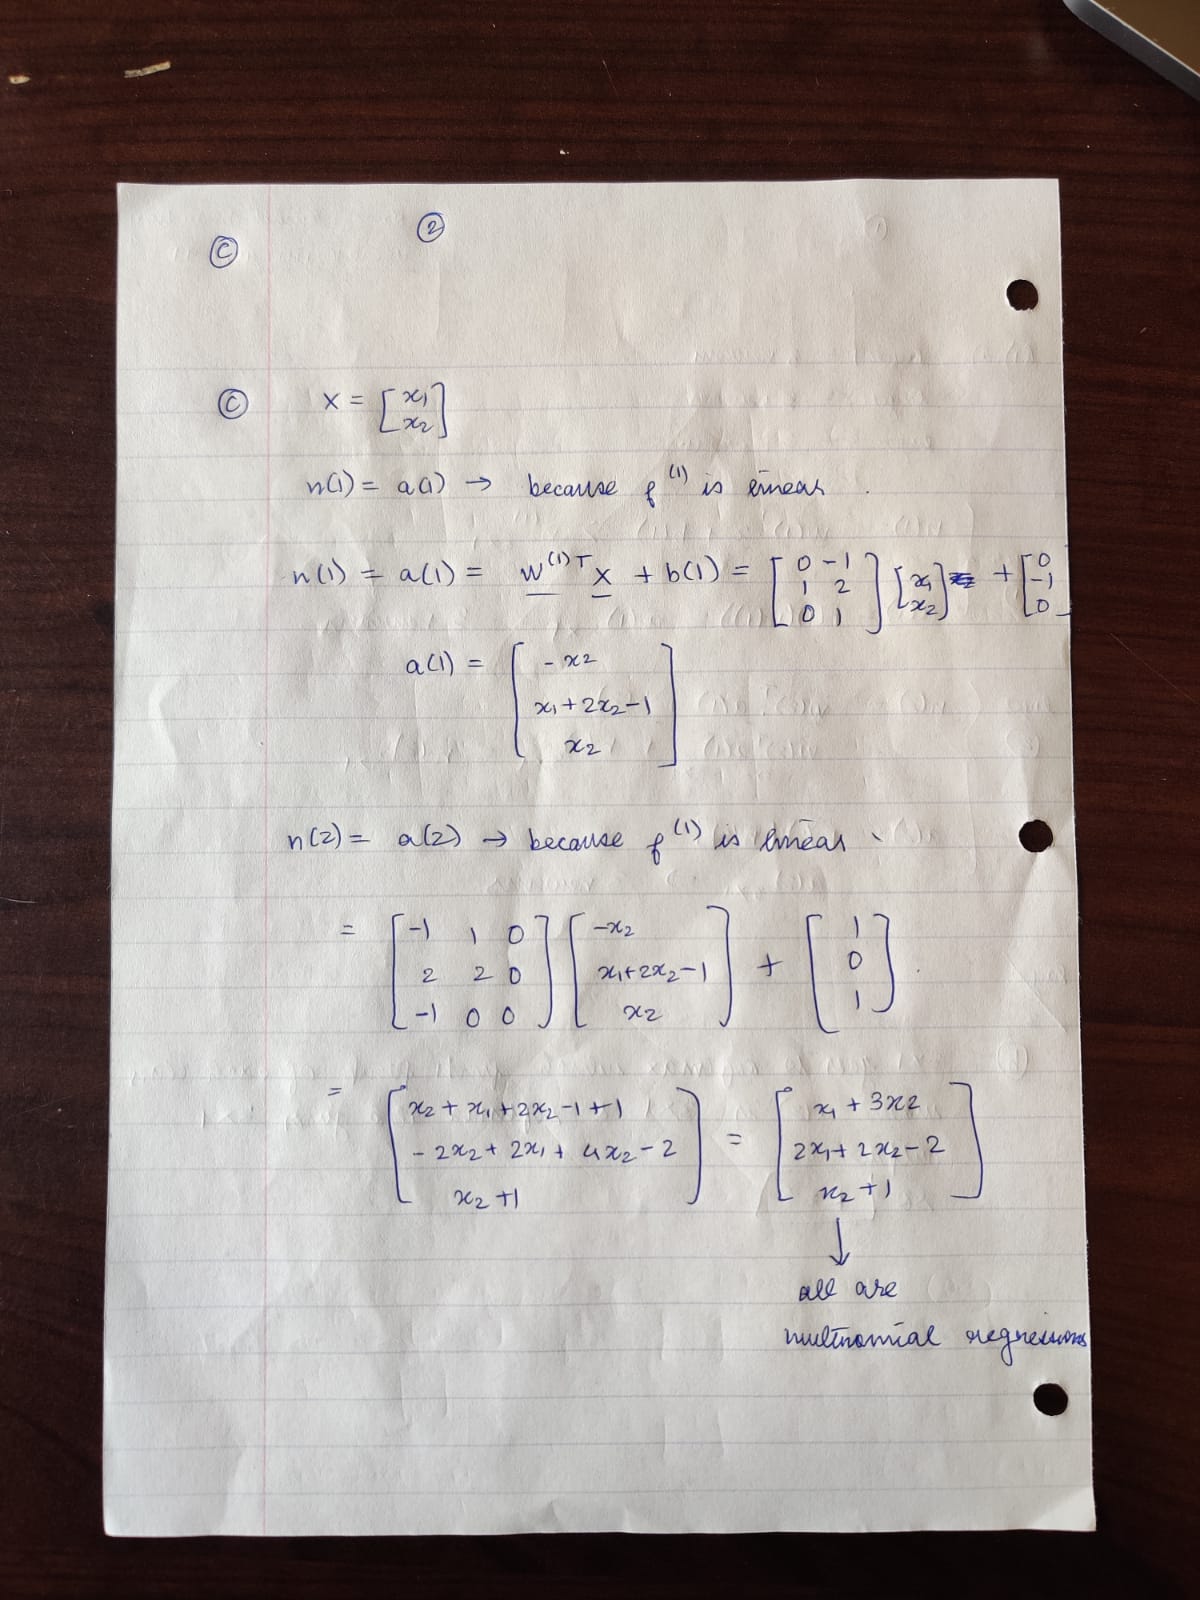 ②
Ⓒ
Ⓒ x = [x₁ x₂]
n(1) = a(1) → because f⁽¹⁾ is linear.
n(1) = a(1) = W⁽¹⁾ᵀ x + b(1) = [0 -1; 1 2; 0 1] [x₁; x₂] + [0; -1; 0]
a(1) = [-x2; x₁+2x₂-1; x2]
n(2) = a(2) → because f⁽¹⁾ is linear.
= [-1 1 0; 2 2 0; -1 0 0] [-x₂; x₁+2x₂-1; x2] + [1; 0; 1]
= [x₂+x₁+2x₂-1+1; -2x₂+2x₁+4x₂-2; x₂+1] = [x₁+3x2; 2x₁+2x₂-2; x₂+1]
↓
all are
multnomial regressions